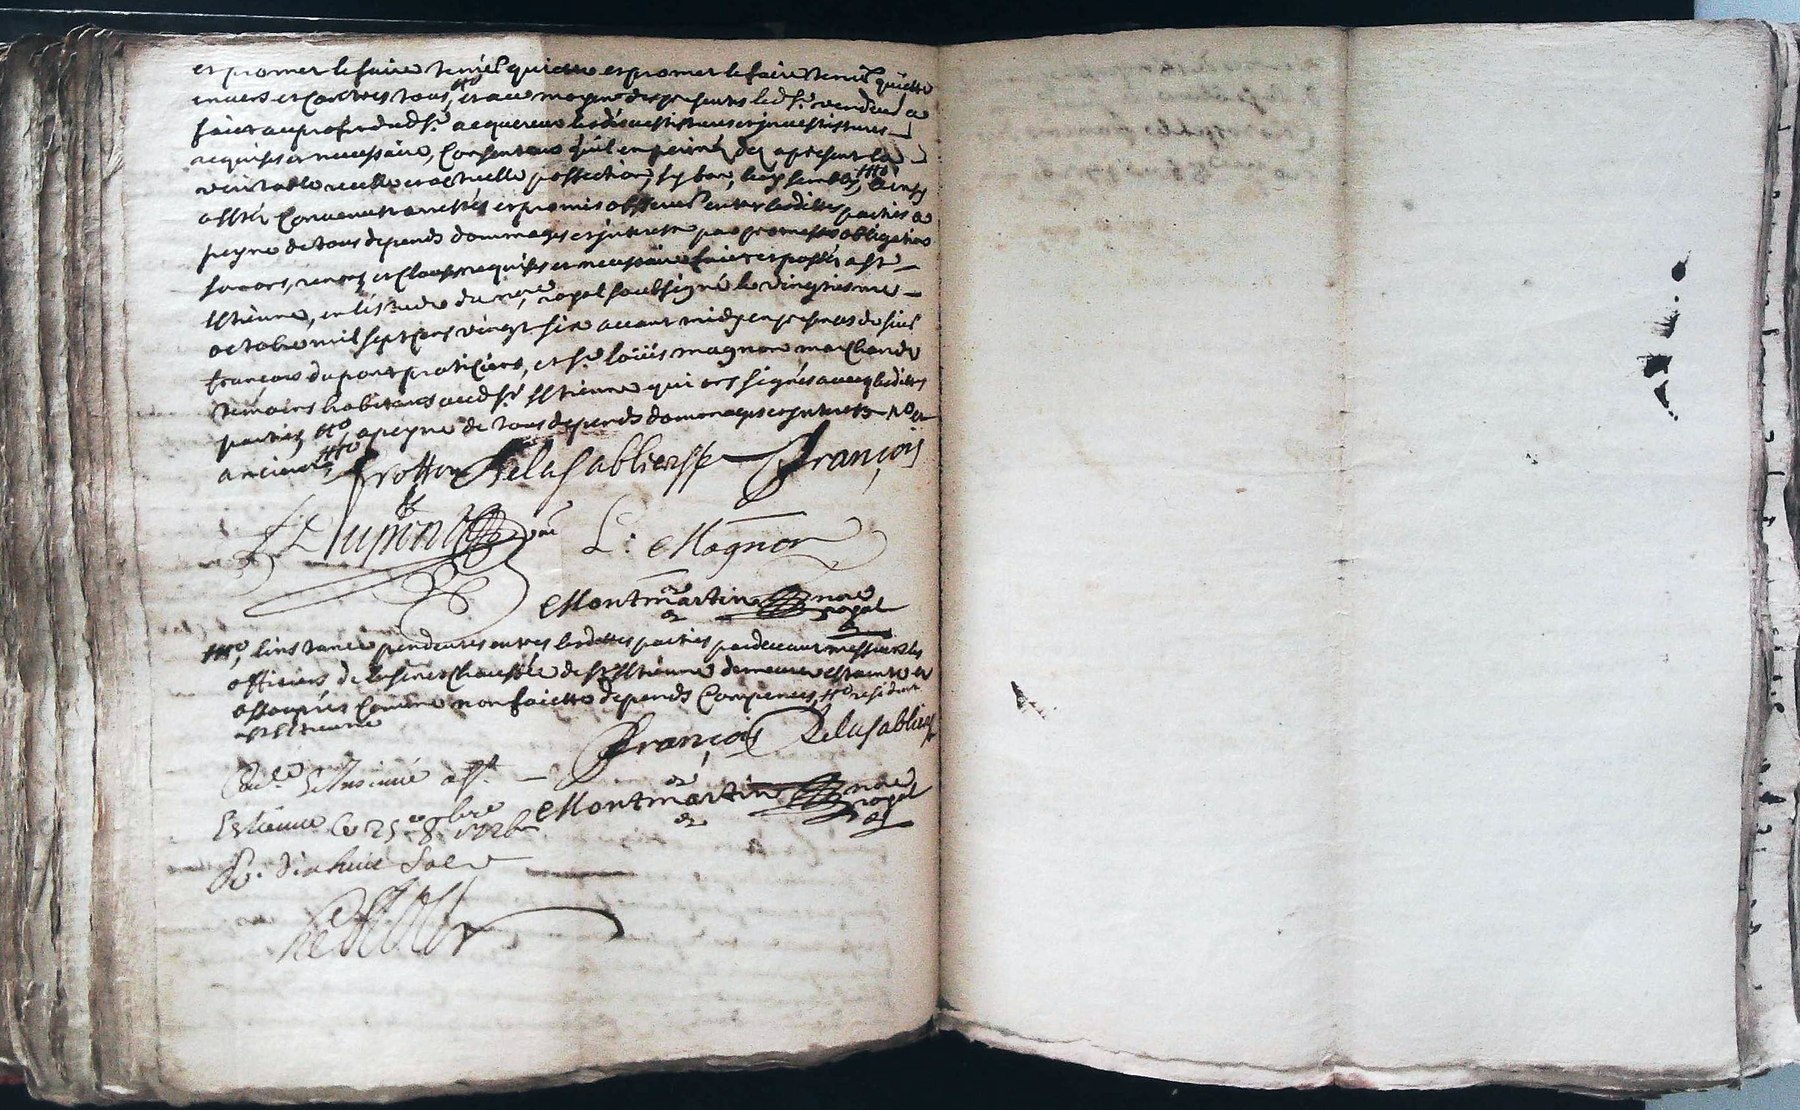 et promet le faire tenir quitte et promet le faire tenir quitte
envers et contres tous, et au moyen des presentes led sr. vendeur a
faict au profit dud sr. acquereur les desvestitures et investitures
requises et necessaire, consentant qu'il en prenne des apresent la
veritable reelle et actuelle possection, sy bon luy semble,
assté convenu arresté et promis observer entre lesdittes parties a
peyne de tous depends dommages et interests par promesses obligations
renon et clauses requises et necessaire faict et passé a St.
Estienne, en l'estude du nore. royal soubsigné le vingtiesme
octobre mil sept cens vingt six avant midy en presences de sieur
françois dupont praticien, et sr. loüis magnon marchand
temoins habitants aud St. Estienne qui ont signés avecq lesdittes
parties a peyne de tous depends dommages et interests
Delasabliere François
Dupont L: Magnon
Montmartin nore
royal
l'instance pendente entres lesdittes parties pardevant messieurs les
officiers de la senechaussée de St Estienne demeure estainte et
assoupie comme non faicte depends compencés, resident
a St Estienne
François Delasabliere
Con.lé et Insinué a St.
Montmartin nore
royal
Estienne le 25e 8bre 1726
R. dix huict sols